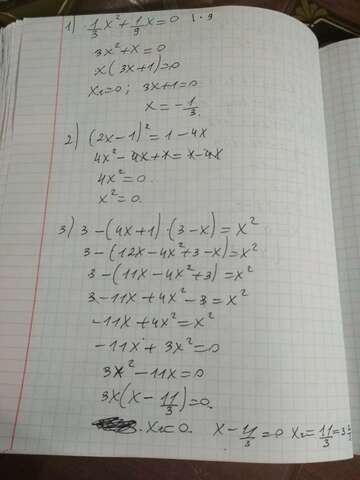 1) 1/3 x² + 1/9 x = 0 | · 9
3x² + x = 0
x(3x+1)=0
x₁=0; 3x+1=0
x = -1/3.
2) (2x-1)² = 1 - 4x
4x² - 4x + 1 = 1 - 4x
4x² = 0.
x² = 0.
3) 3 - (4x+1)·(3-x) = x²
3 - (12x - 4x² + 3 - x) = x²
3 - (11x - 4x² + 3) = x²
3 - 11x + 4x² - 3 = x²
-11x + 4x² = x²
-11x + 3x² = 0
3x² - 11x = 0
3x(x - 11/3) = 0.
x₁ = 0. x - 11/3 = 0 x₂ = 11/3 = 3